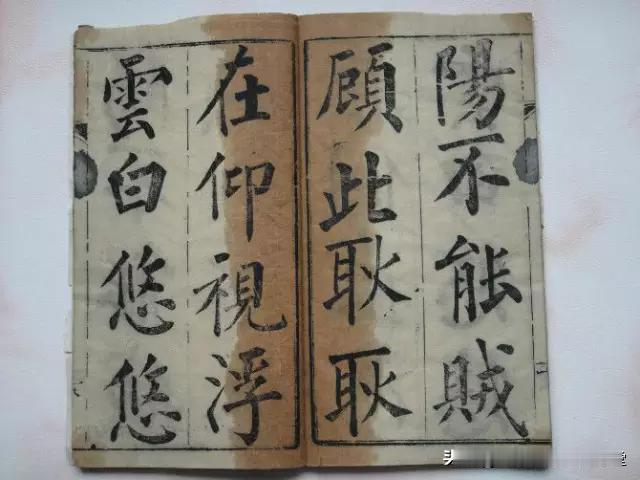 陽不能賊
顧此耿耿
在仰視浮
雲白悠悠